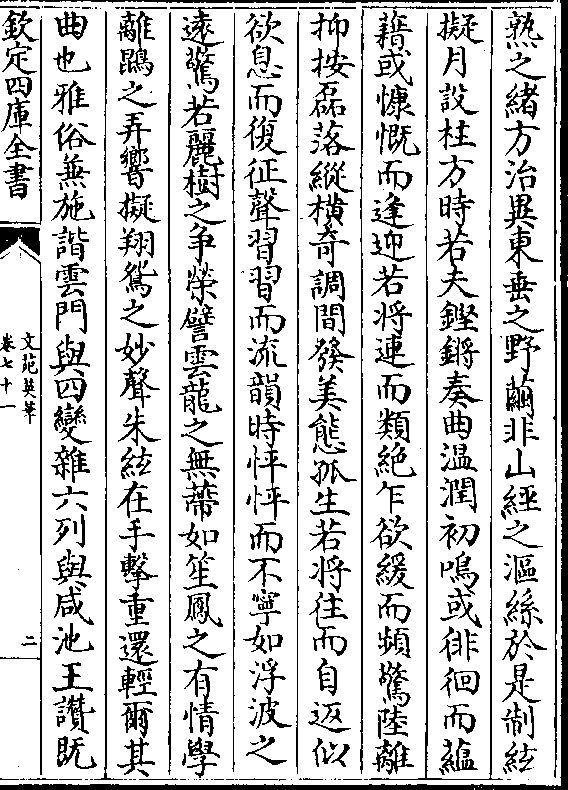 熟之緒方治異東垂之野繭非山經之漚絲於是制絃
擬月設柱方時若夫鏗鏘奏曲温潤初鳴或徘徊而蘊
藉或慷慨而逢迎若將連而類絶乍欲緩而頻驚陸離
抑按磊落縱横奇調間發美態孤生若將往而自返似
欲息而復征聲習習而流韻時怦怦而不寧如浮波之
逺驚若麗樹之争榮譬雲龍之無蔕如笙鳳之有情學
離鵾之弄響擬翔鴛之妙聲朱絃在手擊重還輕爾其
曲也雅俗無施諧雲門與四變雜六列與咸池王讚既
欽定四庫全書
文苑英華
卷七十一
二